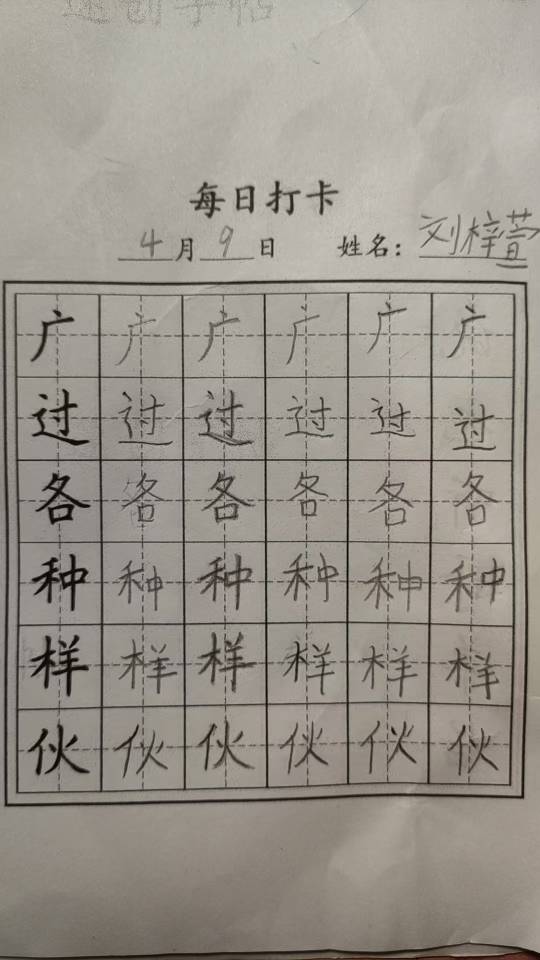 每日打卡
4月9日 姓名：刘梓萱
广广广广广广
过过过过过过
各各各各各各
种种种种种种
样样样样样样
伙伙伙伙伙伙